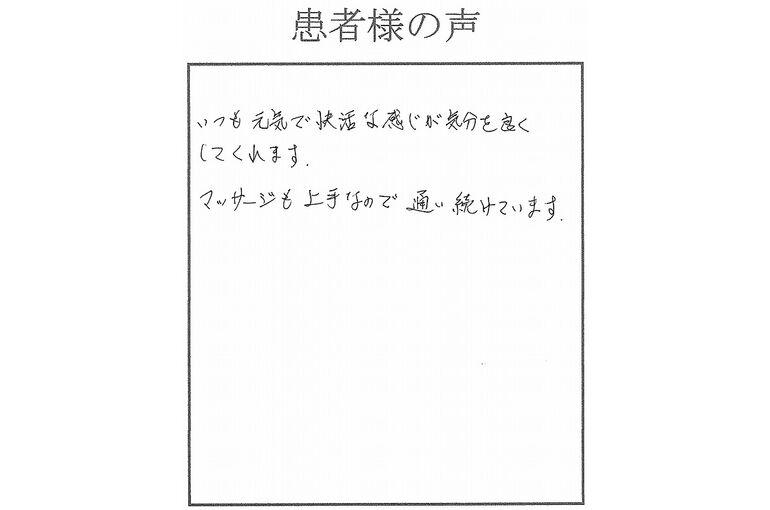 患者様の声
いつも元気で快活な感じが気分を良く
してくれます.
マッサージも上手なので通い続けています.